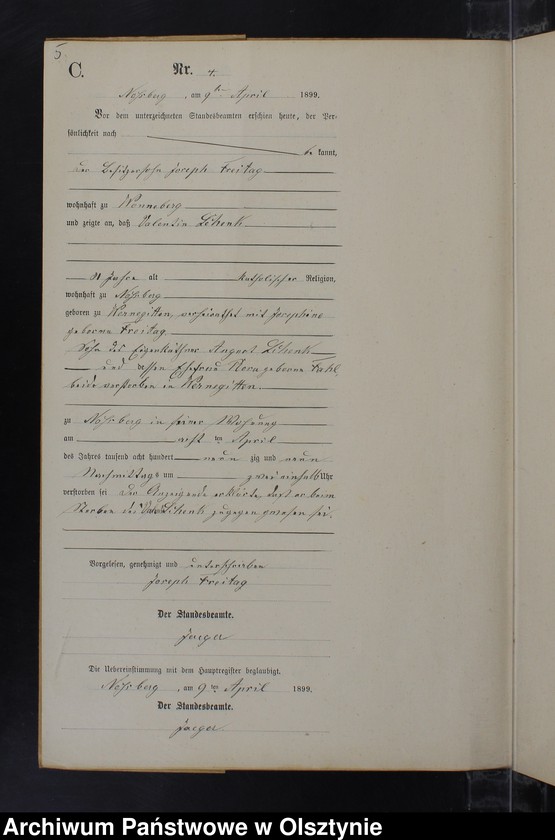 5
C.
Nr. 4.
Noßberg, am 9ten April 1899.
Vor dem unterzeichneten Standesbeamten erschien heute, der Per-
sönlichkeit nach
be kannt,
der Besitzersohn Joseph Freitag
wohnhaft zu Wonneberg
und zeigte an, daß Valentin Schenk
Jahre alt katholischer Religion,
wohnhaft zu Noßberg
geboren zu Wernegitten, verheirathet mit Josephine
geborene Freitag
Sohn des Eigenkäthner August Schenk
und dessen Ehefrau geborene
beide verstorben in Wernegitten.
zu Noßberg in seiner Wohnung
am acht ten April
des Jahres tausend acht hundert neun zig und neun
Nachmittags um zwei einhalb Uhr
verstorben sei. Der Anzeigende erklärte, daß er beim
Sterben des Valentin Schenk zugegen gewesen sei.
Vorgelesen, genehmigt und unterschrieben
Joseph Freitag
Der Standesbeamte.
Jaeger
Die Uebereinstimmung mit dem Hauptregister beglaubigt.
Noßberg, am 9ten April 1899.
Der Standesbeamte.
Jaeger.
Archiwum Państwowe w Olsztynie